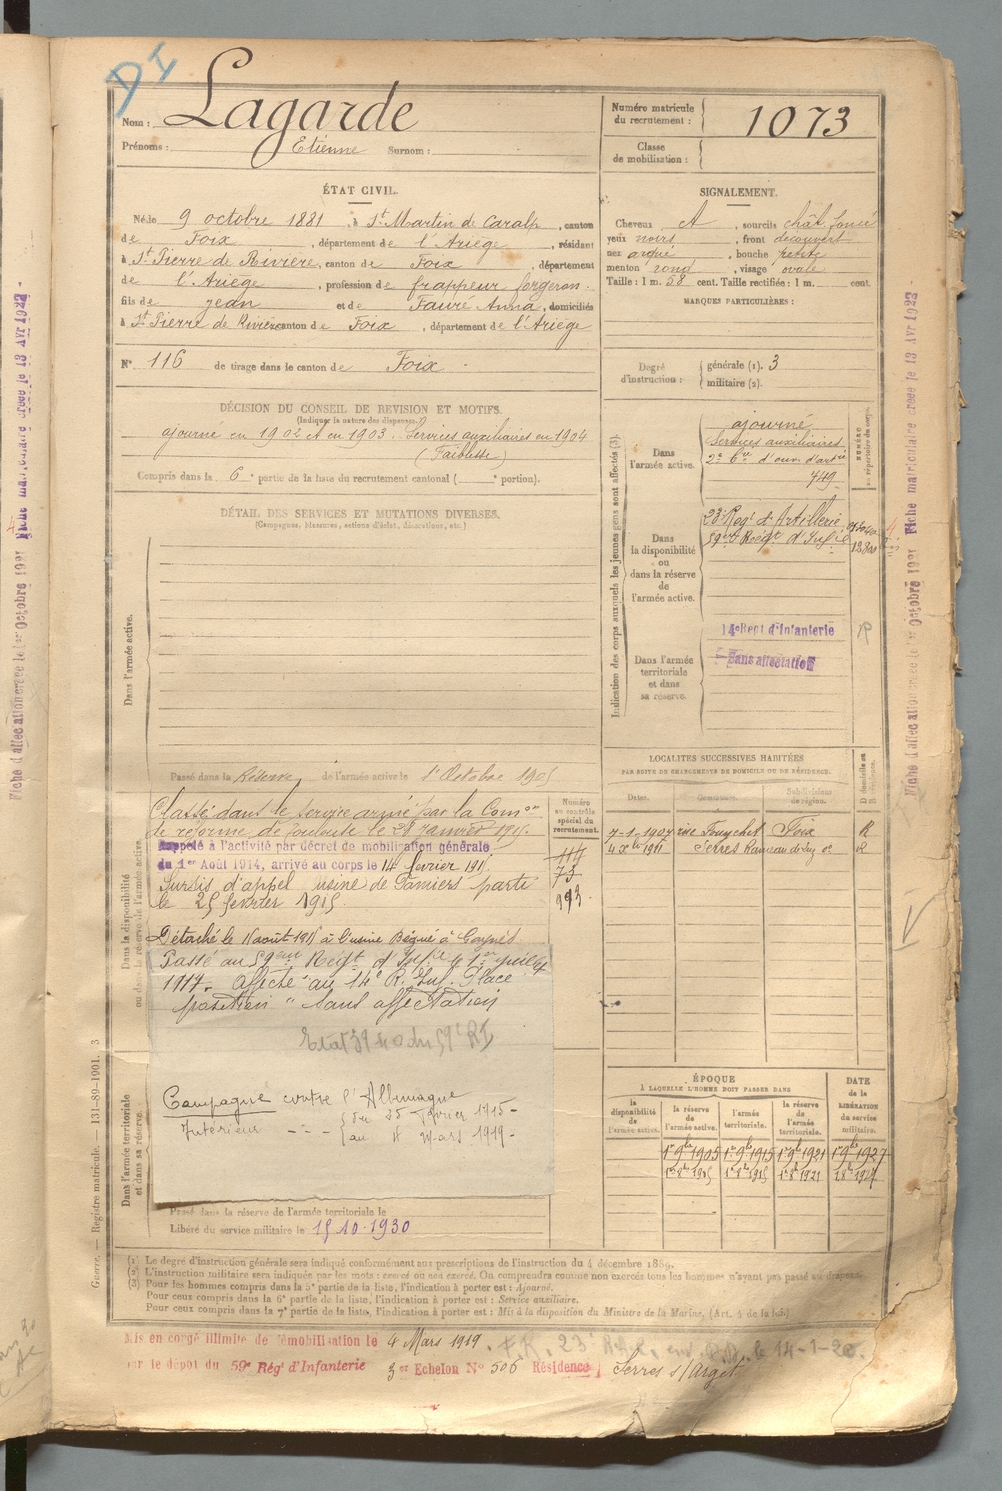 DI
Nom : Lagarde
Prénoms : Etienne Surnom :
Numéro matricule du recrutement : 1073
Classe de mobilisation :
ÉTAT CIVIL.
Né le 9 octobre 1881, à St Martin de Caralp, canton
de Foix, département de l'Ariège, résidant
à St Pierre de Rivière, canton de Foix, département
de l'Ariège, profession de frappeur forgeron
fils de Jean et de Fauré Anna, domiciliés
à St Pierre de Rivière canton de Foix, département de l'Ariège
N° 116 de tirage dans le canton de Foix
SIGNALEMENT.
Cheveux, sourcils chât foncé
yeux noirs, front découvert
nez arqué, bouche petite
menton rond, visage ovale
Taille : 1 m. 58 cent. Taille rectifiée : 1 m. cent.
MARQUES PARTICULIÈRES :
Degré d'instruction : générale (1). 3
militaire (2).
DÉCISION DU CONSEIL DE REVISION ET MOTIFS.
(Indiquer la nature des dispenses.)
ajourné en 1902 et en 1903. Services auxiliaires en 1904
(Faiblesse)
Compris dans la 6e partie de la liste du recrutement cantonal ( e portion).
DÉTAIL DES SERVICES ET MUTATIONS DIVERSES.
(Campagnes, blessures, actions d'éclat, décorations, etc.)
Dans l'armée active.
Indication des corps auxquels les jeunes gens sont affectés (3).
NUMÉRO au répertoire du corps.
Dans l'armée active.
ajourné
Services auxiliaires
749
Dans la disponibilité ou dans la réserve de l'armée active.
23e Regt d'Artillerie
59e Regt d'Infie
Dans l'armée territoriale et dans sa réserve.
14e Regt d'Infanterie R
Sans affectation
Passé dans la Réserve de l'armée active le 1er Octobre 1905
Dans la disponibilité ou dans la réserve de l'armée active.
Numéro au contrôle spécial du recrutement.
114
73
993
Classé dans le service armé par la Comon
de réforme de Toulouse le 28 janvier 1915.
Rappelé à l'activité par décret de mobilisation générale
du 1er Août 1914, arrivé au corps le 14 février 1915
Sursis d'appel usine de Pamiers parti
le 25 février 1915.
Détaché le août 1915 à l'usine
Passé au 59eme Regt d'Infie le 1er juillet
1917. Affecté au 14e R. Inf. Place
position "Sans affectation"
Etat 39 40 du 59e RI
Campagne contre l'Allemagne
Intérieur du 25 février 1915
au 4 Mars 1919
LOCALITÉS SUCCESSIVES HABITÉES
PAR SUITE DE CHANGEMENTS DE DOMICILE OU DE RÉSIDENCE.
Dates. Communes. Subdivisions de région. D domicile ou R résidence.
7-1-1907 rue Foix R
4 Xbre 1911 Serres R
ÉPOQUE
À LAQUELLE L'HOMME DOIT PASSER DANS
DATE DE LA LIBÉRATION DU service militaire.
la disponibilité de l'armée active. la réserve de l'armée active. l'armée territoriale. la réserve de l'armée territoriale.
1er 9bre 1905 1er 9bre 1915 1er 9bre 1921 1er 9bre 1927
Dans l'armée territoriale et dans sa réserve.
Passé dans la réserve de l'armée territoriale le
Libéré du service militaire le 15-10-1930
Guerre. — Registre matricule. — 131-89-1901. 3
(1) Le degré d'instruction générale sera indiqué conformément aux prescriptions de l'instruction du 4 décembre 1889.
(2) L'instruction militaire sera indiquée par les mots : exercé ou non exercé. On comprendra comme non exercés tous les hommes n'ayant pas passé au drapeau.
(3) Pour les hommes compris dans la 5e partie de la liste, l'indication à porter est : Ajourné.
Pour ceux compris dans la 6e partie de la liste, l'indication à porter est : Service auxiliaire.
Pour ceux compris dans la 7e partie de la liste, l'indication à porter est : Mis à la disposition du Ministre de la Marine. (Art. 4 de la loi)
Mis en congé illimité de démobilisation le 4 Mars 1919. le 14-1-20.
par le dépôt du 59e Rég' d'Infanterie 3e Echelon N° 506 Résidence Serres s/Arget
Fiche d'affectation créée le 1er Octobre 1921 Fiche matriculaire créée le 13 Avr 1923
Fiche d'affectation créée le 1er Octobre 1921 Fiche matriculaire créée le 13 Avr 1923